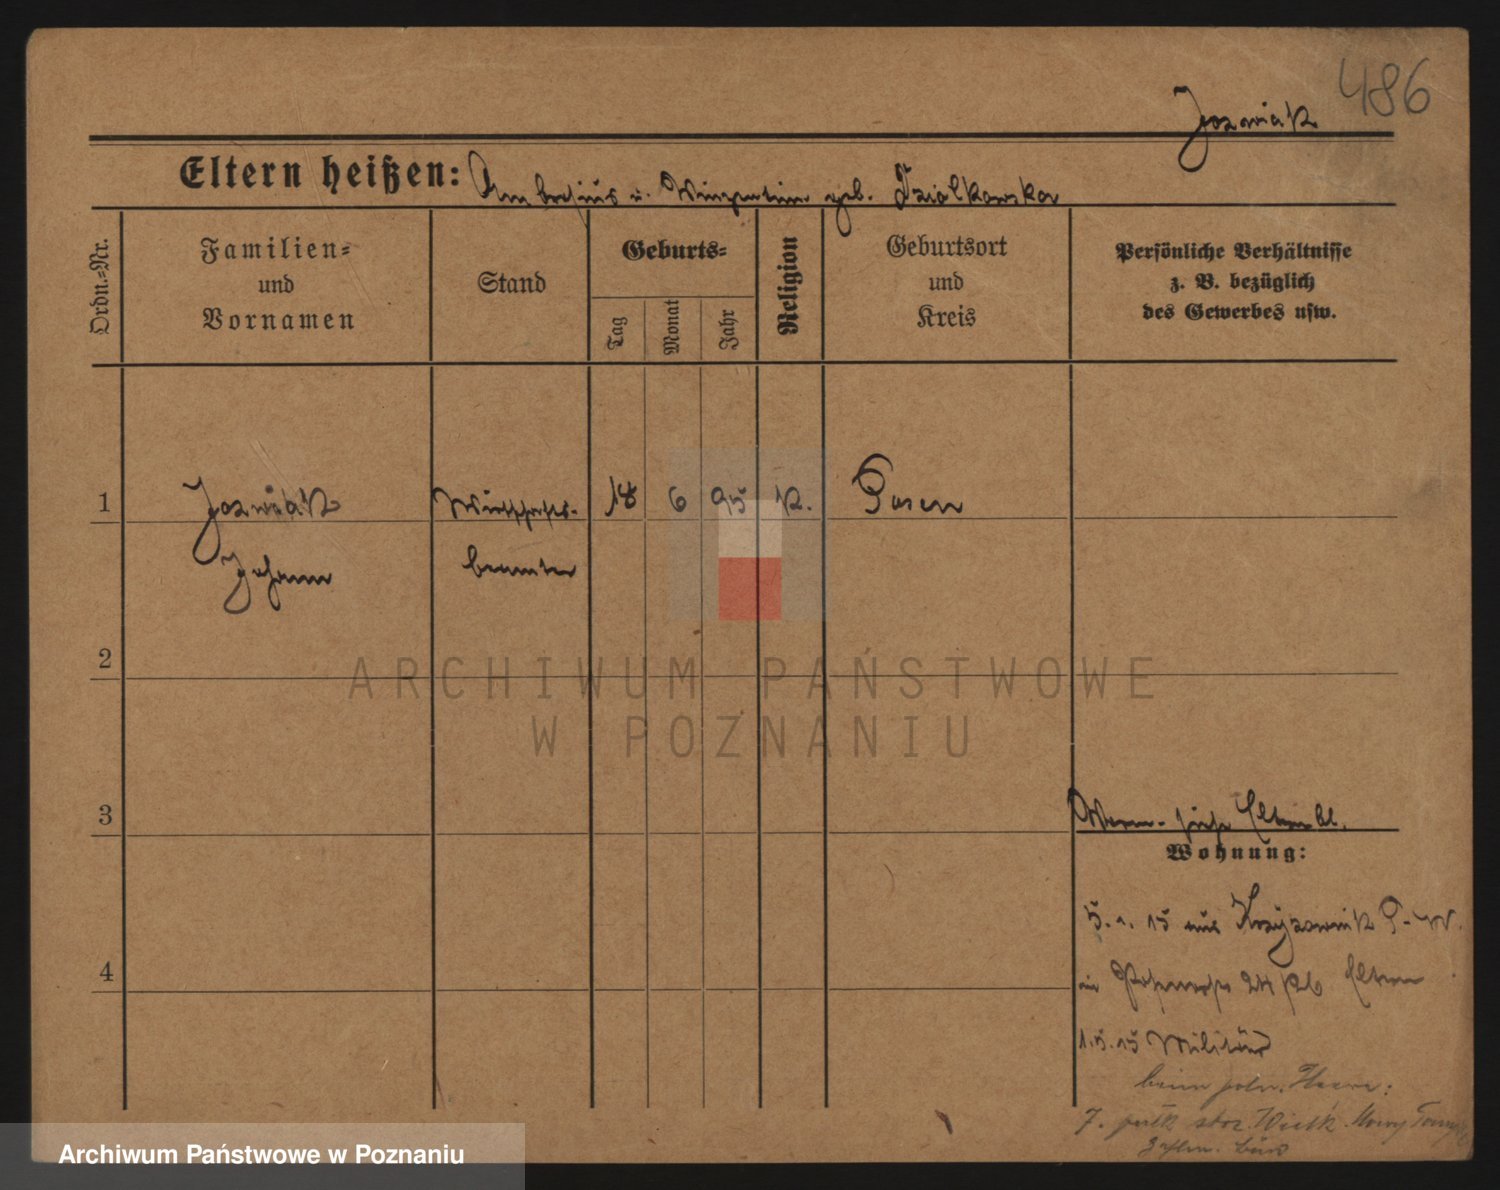 486
Jozwiak
Eltern heißen: Ambrosius u. geb. Dzialkowska
Ordn.-Nr.
Familien-
und
Vornamen
Stand
Geburts-
Tag
Monat
Jahr
Religion
Geburtsort
und
Kreis
Persönliche Verhältnisse
z. B. bezüglich
des Gewerbes usw.
1 Jozwiak Wirtschafts- 18 6 95 K. Posen
Johann beamter
2
ARCHIWUM PAŃSTWOWE
W POZNANIU
3
siehe Elternbl.
Wohnung:
5. 1. 15 aus
4
in 24 Eltern
1.5.15 Militär
beim poln. Heere:
7. pułk strz. Wielk.
Archiwum Państwowe w Poznaniu